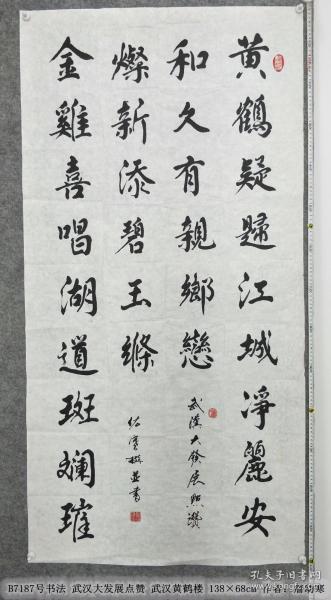 黄鶴疑歸江城淨麗安
和久有親鄉戀
武漢大發展點讚
金雞喜唱湖道斑斕璀
燦新添碧玉縧
撰並書
B7187号书法 武汉大发展点赞 武汉黄鹤楼 138×68cm 作者
孔夫子旧书网